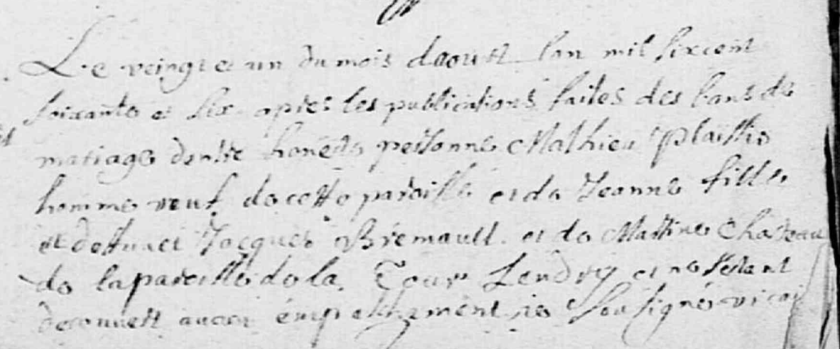 Le veingt et un du mois daoust lan mil six cent
soixante et six apres les publications faites des bans de
mariage dentre honeste personne Mathieu Plaistre
homme veuf de cette paroisse et de Jeanne fille
et deffunct Jacques Bremault et de Martine Chateau
de la paroisse de la Tour Lendry et ne sestant
decouvert aucun empeschement ie soussigné vicai